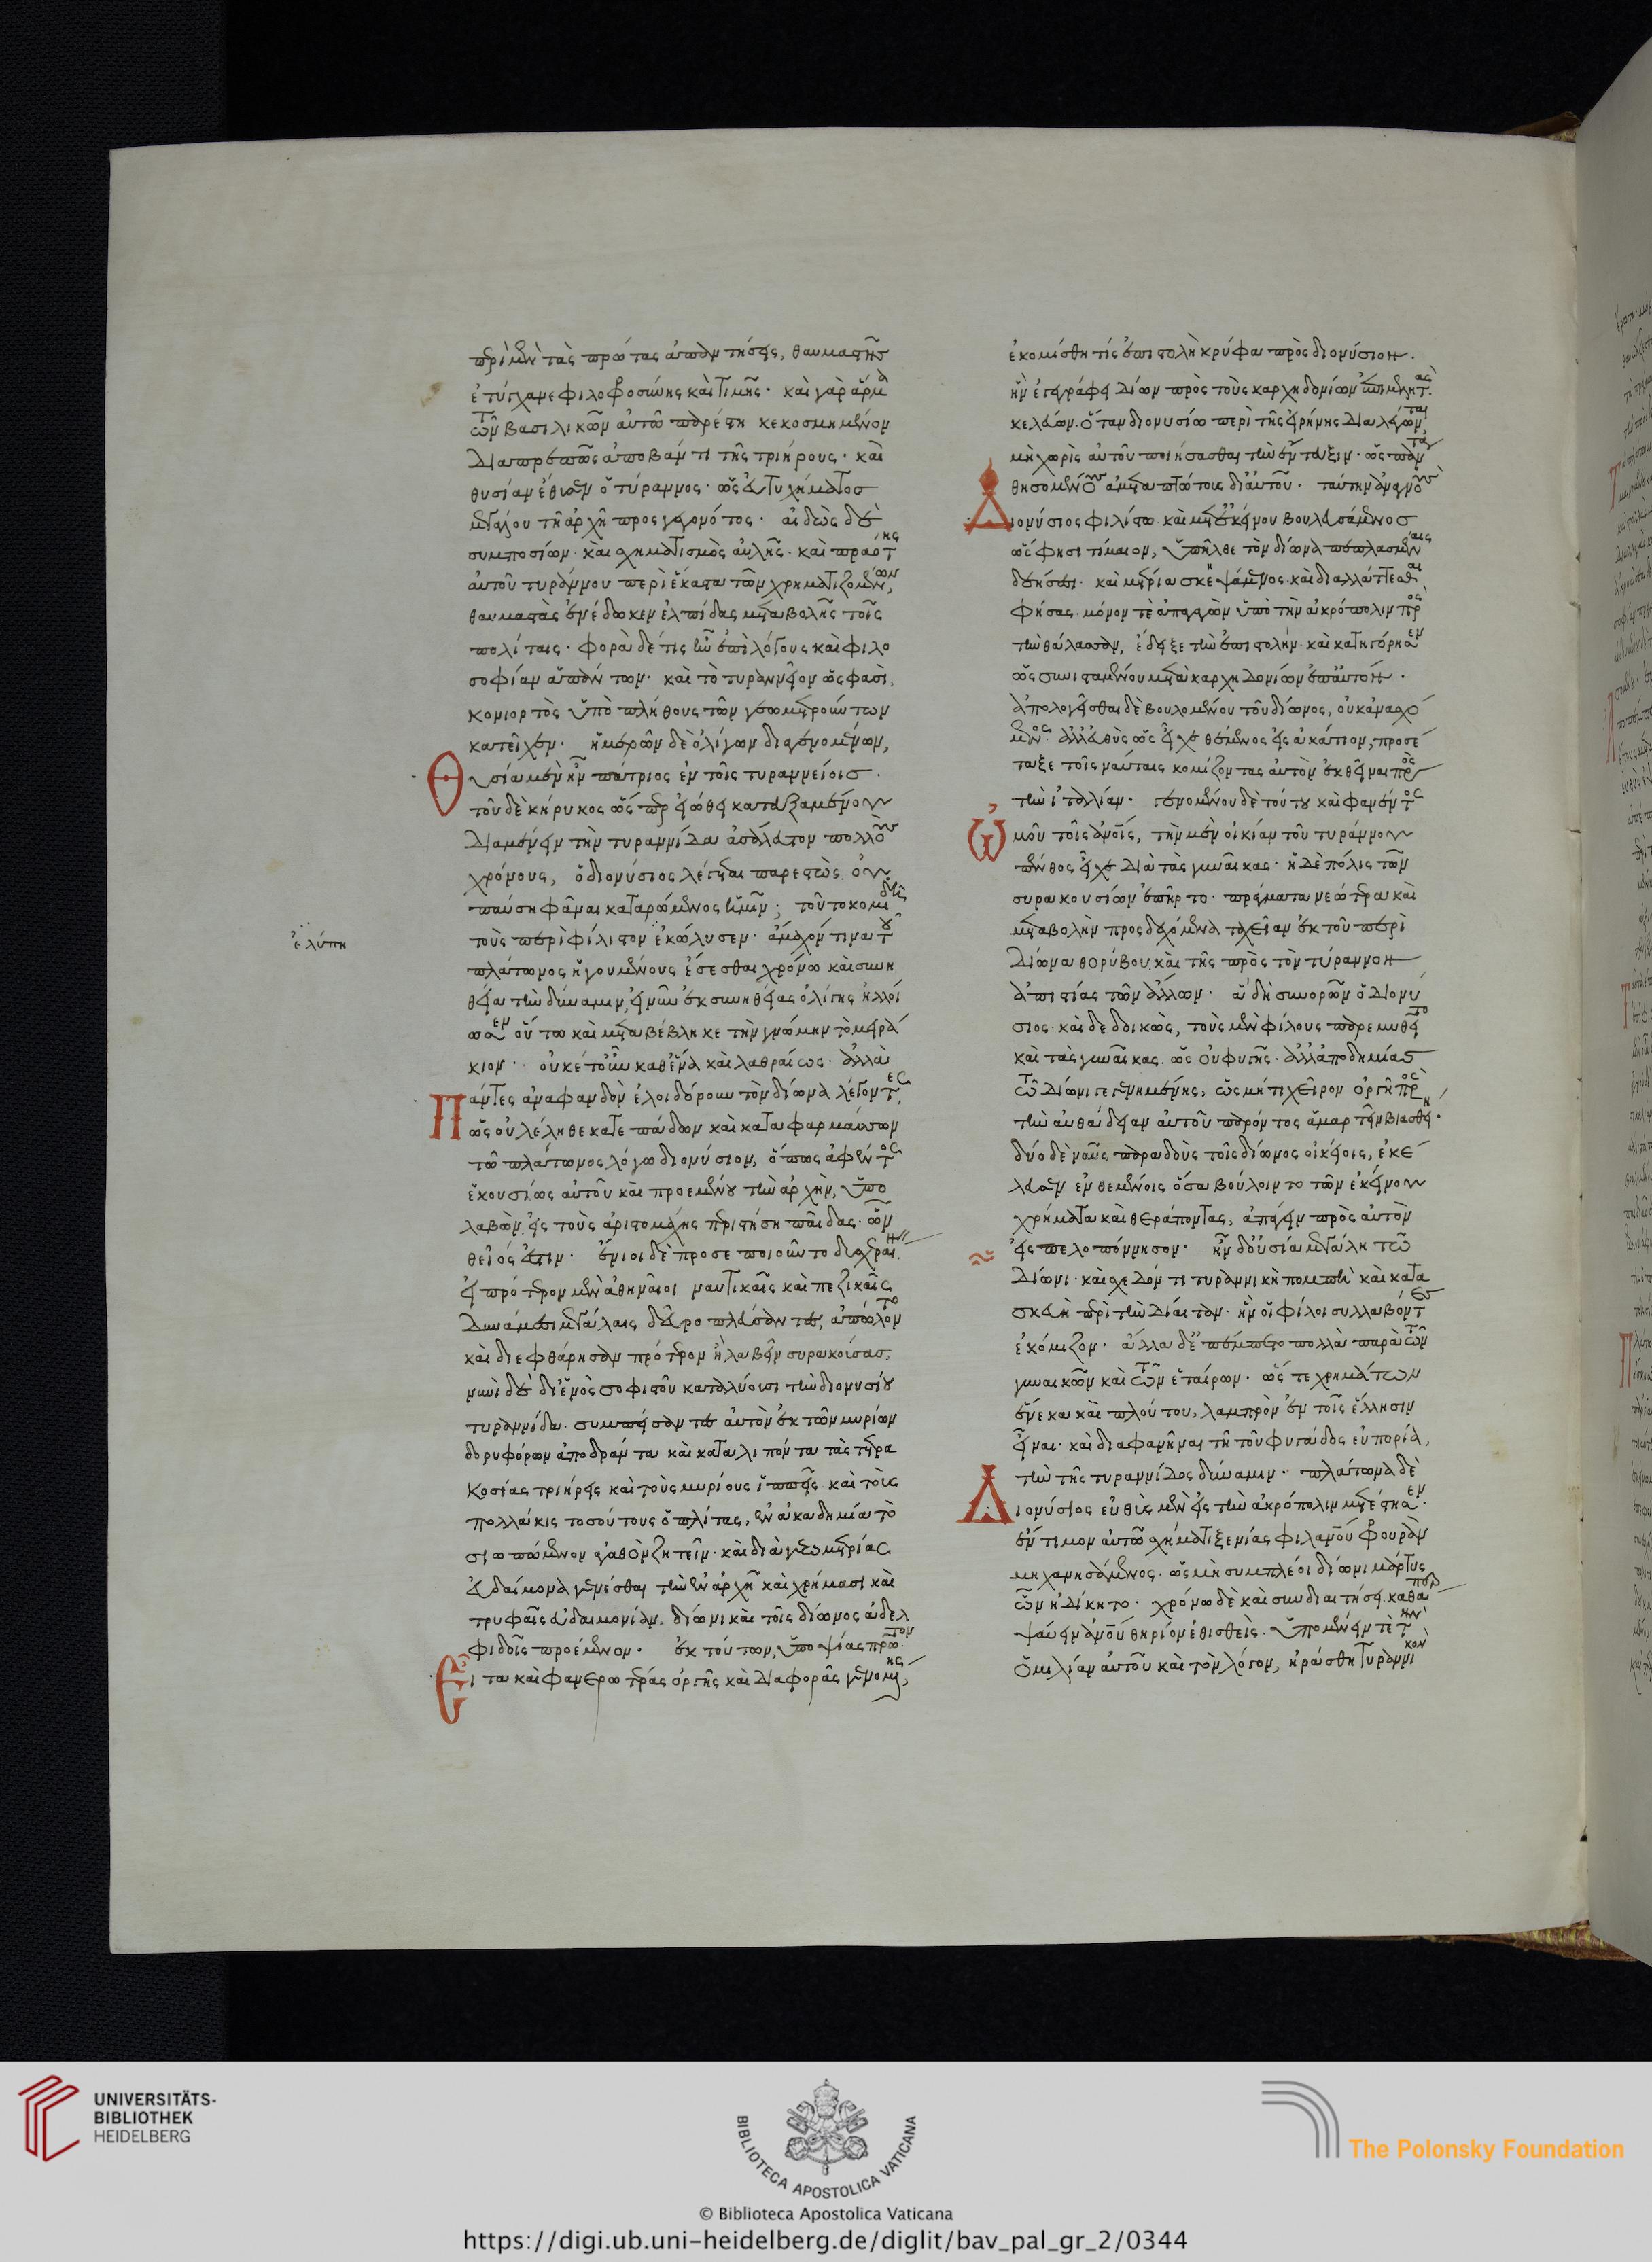 περὶ μὲν τὰς πρώτας ἀπαντήσεις, θαυμαστῆς
ἐτύγχανε φιλοφροσύνης καὶ τιμῆς. καὶ γὰρ ἅρμα
τῶν βασιλικῶν αὐτῶ παρέστη κεκοσμημένον
διαπρεπῶς ἀποβάντι τῆς τριήρους. καὶ
θυσίαν ἔθυσεν ὁ τύραννος. ὡς εὐτυχήματος
μεγάλου τῆ ἀρχῆ προσγεγονότος. αἰδὼς δὲ
συμποσίων. καὶ σχηματισμὸς αὐλῆς. καὶ πραότης
αὐτοῦ τυράννου περὶ ἕκαστα τῶν χρηματιζομένων,
θαυμαστὰς ἐνέδωκεν ἐλπίδας μεταβολῆς τοῖς
πολίταις. φορὰ δέ τις ἦν ἐπὶ λόγους καὶ φιλο
σοφίαν ἁπάντων. καὶ τὸ τυραννεῖον ὥς φασι,
κονιορτὸς ὑπὸ πλήθους τῶν γεωμετρούντων
κατεῖχεν. ἡμερῶν δὲ ὀλίγων διαγενομένων,
Θυσία μὲν ἦν πάτριος ἐν τοῖς τυραννείοις.
τοῦ δὲ κήρυκος ὥσπερ εἰώθει κατευξαμένου
διαμένειν τὴν τυραννίδα ἀσάλευτον πολλοὺς
χρόνους, ὁ διονύσιος λέγεται παρεστὼς. οὐ
παύση φᾶναι καταρώμενος ἡμῖν; τοῦτο κομιδῆ
τοὺς περὶ φίλιστον ἐκώλυσεν. ἄμαχόν τινα τοῦ
ἐλύπη
πλάτωνος ἡγουμένους ἔσεσθαι χρόνω καὶ συνη
θεία τὴν δύναμιν, εἰ νῦν ἐκ συνηθείας ὀλίγης ἠλλοί
ωσεν οὕτω καὶ μεταβέβληκε τὴν γνώμην τὸ μειρά
κιον. οὐκέτ οὖν καθ ἕνα καὶ λαθραίως. ἀλλὰ
Πάντες ἀναφανδὸν ἐλοιδόρουν τὸν δίωνα λέγοντες,
ὡς οὐ λέληθε κατεπάδων καὶ καταφαρμάσσων
τῶ πλάτωνος λόγω διονύσιον, ὅπως ἀφέντος
ἑκουσίως αὐτοῦ καὶ προεμένου τὴν ἀρχὴν, ὑπο
λαβὼν εἰς τοὺς ἀριστομάχης περιστήση παῖδας. ὧν
θεῖός ἐστιν. ἔνιοι δὲ προσεποιοῦντο δυσχεραίνειν
εἰ πρότερον μὲν ἀθηναῖοι ναυτικαῖς καὶ πεζικαῖς
δυνάμεσι μεγάλαις δεῦρο πλεύσαντες, ἀπώλοντο
καὶ διεφθάρησαν πρότερον ἢ λαβεῖν συρακούσας,
νυνὶ δὲ δι ἑνὸς σοφιστοῦ καταλύουσι τὴν διονυσίου
τυραννίδα. συμπείσαντες αὐτὸν ἐκ τῶν μυρίων
δορυφόρων ἀποδράντα καὶ καταλιπόντα τὰς τετρα
κοσίας τριήρεις καὶ τοὺς μυρίους ἱππεῖς καὶ τοὺς
πολλάκις τοσούτους ὁπλίτας, ἐν ἀκαδημία τὸ
σιωπώμενον ἀγαθὸν ζητεῖν. καὶ διὰ γεωμετρίας
εὐδαίμονα γενέσθαι τὴν ἐν ἀρχῆ καὶ χρήμασι καὶ
τρυφαῖς εὐδαιμονίαν, δίωνι καὶ τοῖς δίωνος ἀδελ
φιδοῖς προέμενον. ἐκ τούτων, ὑποψίας πρῶτον.
Εἶτα καὶ φανερωτέρας ὀργῆς καὶ διαφορᾶς γενομένης,
ἐκομίσθη τίς ἐπιστολὴ κρύφα πρὸς διονύσιον.
ἣν ἐγεγράφει δίων πρὸς τοὺς καρχηδονίων ἐπιμελητὰς.
κελεύων. ὅταν διονυσίω περὶ τῆς εἰρήνης διαλέγωνται
μὴ χωρὶς αὐτοῦ ποιήσασθαι τὴν ἔντευξιν. ὡς πάντα
θησομένους ἀμεταπτώτως δι αὐτοῦ. ταύτην ἀναγνοὺς
Διονύσιος φιλίστω. καὶ μετ ἐκείνου βουλευσάμενος
ὥς φησι τίμαιον, ὑπῆλθε τὸν δίωνα πεπλασμέναις
διαλύσεσι. καὶ μέτρια σκηψάμενος. καὶ διαλλάττεσθαι
φήσας. μόνον τὲ ἀπαγαγὼν ὑπὸ τὴν ἀκρόπολιν πρὸς
τὴν θάλασσαν, ἔδειξε τὴν ἐπιστολὴν. καὶ κατηγόρησεν
ὡς συνισταμένου μετὰ καρχηδονίων ἐπ αὐτόν.
ἀπολογεῖσθαι δὲ βουλομένου τοῦ δίωνος, οὐκ ἀνασχό
μενος. ἀλλ εὐθὺς ὡς εἶχε θέμενος εἰς ἀκάτιον, προσέ
ταξε τοῖς ναύταις κομίζοντας αὐτὸν ἐκθεῖναι πρὸς
τὴν ἰταλίαν. γενομένου δὲ τούτου καὶ φανέντος
Ὠμοῦ τοῖς ἀνοις, τὴν μὲν οἰκίαν τοῦ τυράννου
πένθος εἶχε διὰ τὰς γυναῖκας. ἡ δὲ πόλις τῶν
συρακουσίων ἐπῆρτο. πράγματα νεώτερα καὶ
μεταβολὴν προσδεχόμενα ταχεῖαν ἐκ τοῦ περὶ
δίωνα θορύβου. καὶ τῆς πρὸς τὸν τύραννον
ἀπιστίας τῶν ἄλλων. ἃ δὴ συνορῶν ὁ διονύ
σιος. καὶ δεδοικὼς, τοὺς μὲν φίλους παρεμυθεῖτο
καὶ τὰς γυναῖκας. ὡς οὐ φυγῆς. ἀλλ ἀποδημίας
τῶ δίωνι γεγενημένης. ὡς μή τι χεῖρον ὀργῆ πρὸς
τὴν αὐθάδειαν αὐτοῦ παρόντος ἁμαρτεῖν βιασθείη.
δύο δὲ ναῦς παραδοὺς τοῖς δίωνος οἰκείοις, ἐκέ
λευσεν ἐνθεμένοις ὅσα βούλοιντο τῶν ἐκείνου
χρήματα καὶ θεράποντας, ἀπάγειν πρὸς αὐτὸν
εἰς πελοπόννησον. ἦν δ οὐσία μεγάλη τῶ
δίωνι. καὶ σχεδόν τι τυραννικὴ πομπὴ καὶ κατα
σκευὴ περὶ τὴν δίαιταν. ἣν οἱ φίλοι συλλαβόντες
ἐκόμιζον. ἄλλα δ ἐπέμπετο πολλὰ παρὰ τῶν
γυναικῶν καὶ τῶν ἑταίρων. ὥς τε χρημάτων
ἕνεκα καὶ πλούτου, λαμπρὸν ἐν τοῖς ἕλλησιν
εἶναι. καὶ διαφανῆναι τῆ τοῦ φυγάδος εὐπορία,
τὴν τῆς τυραννίδος δύναμιν. πλάτωνα δὲ
Διονύσιος εὐθὺς μὲν εἰς τὴν ἀκρόπολιν μετέστησεν.
ἔντιμον αὐτῶ σχήματι ξενίας φιλανου φρουρὰν
μηχανησάμενος. ὡς μὴ συμπλέοι δίωνι μάρτυς
ὧν ἠδίκητο. χρόνω δὲ καὶ συνδιαιτήσει. καθάπερ
ψαύειν ἀνου θηρίον ἐθισθεὶς. ὑπομένειν τὲ τὴν
ὁμιλίαν αὐτοῦ καὶ τὸν λόγον, ἠράσθη τυραννικὸν
UNIVERSITÄTS-
BIBLIOTHEK
HEIDELBERG
BIBLIOTECA APOSTOLICA VATICANA
The Polonsky Foundation
© Biblioteca Apostolica Vaticana
https://digi.ub.uni-heidelberg.de/diglit/bav_pal_gr_2/0344